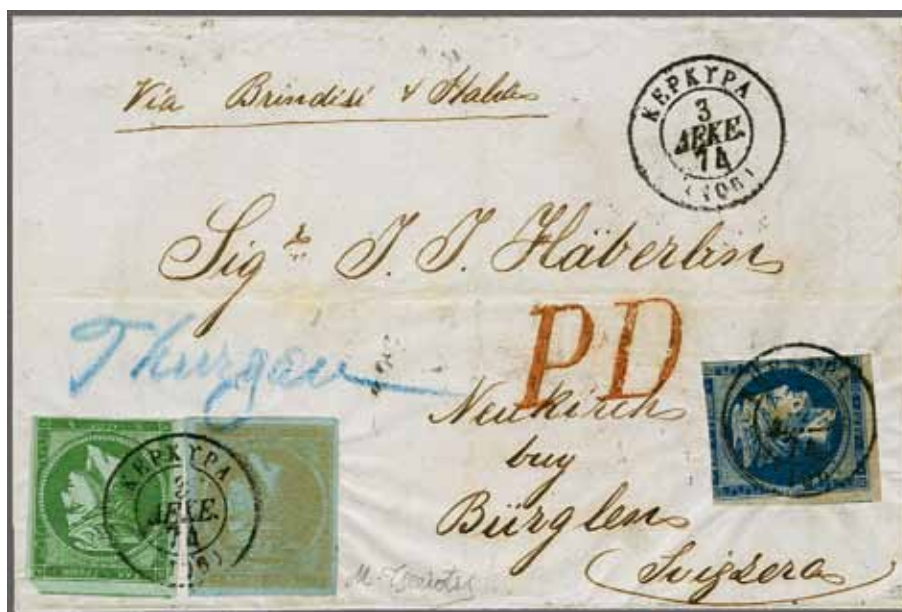 Via Brindisi & Italia
ΚΕΡΚΥΡΑ
3
ΔΕΚΕ.
74
(106)
Sigr J. J. Häberlin
PD
Thurgau
Neukirch
buy
Bürglen
(Svizzera
ΚΕΡΚΥΡΑ
3
ΔΕΚΕ.
74
(106)